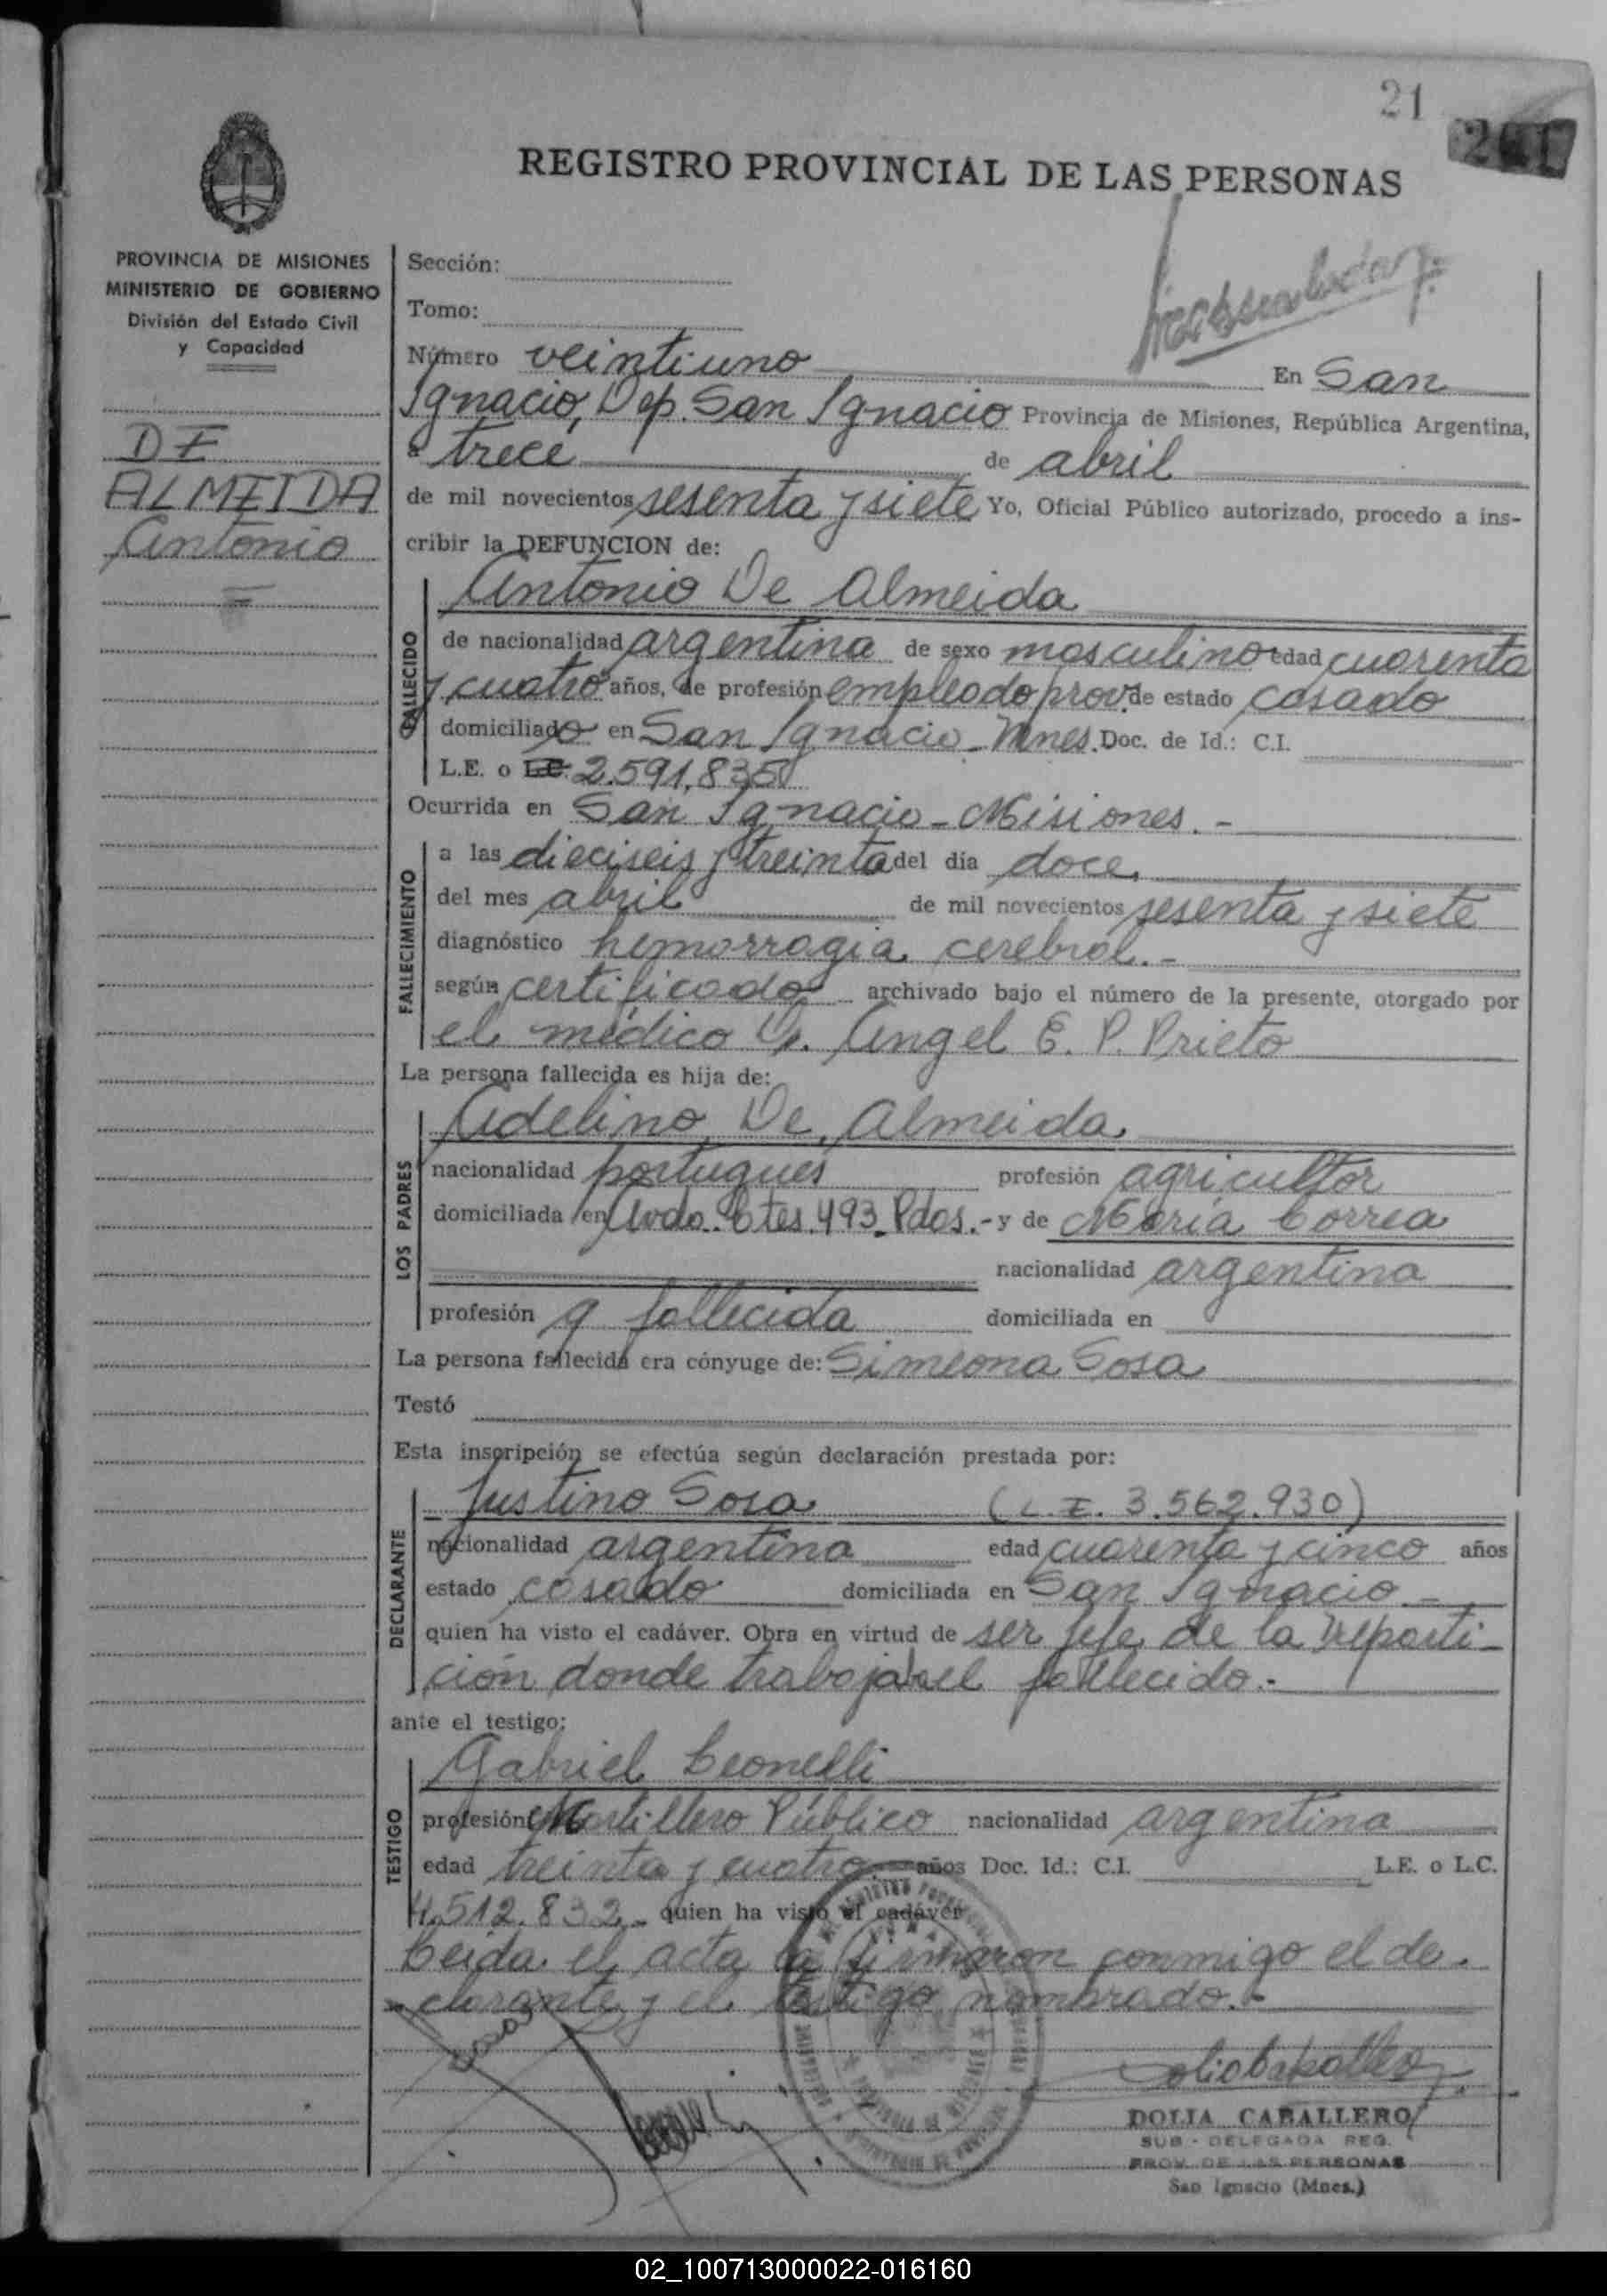 21
REGISTRO PROVINCIAL DE LAS PERSONAS
PROVINCIA DE MISIONES
MINISTERIO DE GOBIERNO
División del Estado Civil
y Capacidad
DE
ALMEIDA
Antonio
Sección:
Tomo:
Número veintiuno En San
Ignacio, Dep. San Ignacio Provincia de Misiones, República Argentina,
a trece de abril
de mil novecientos sesenta y siete Yo, Oficial Público autorizado, procedo a ins-
cribir la DEFUNCION de:
FALLECIDO
Antonio De Almeida
de nacionalidad argentina de sexo masculino edad cuarenta
y cuatro años, de profesión empleado prov. de estado casado
domiciliado en San Ignacio - Mnes. Doc. de Id.: C.I.
L.E. o L.C. 2.591.835
Ocurrida en San Ignacio - Misiones. -
FALLECIMIENTO
a las dieciseis y treinta del día doce
del mes abril de mil novecientos sesenta y siete
diagnóstico hemorragia cerebral. -
según certificado archivado bajo el número de la presente, otorgado por
el médico Dr. Angel E. P. Prieto
La persona fallecida es hija de:
LOS PADRES
Adelino De Almeida
nacionalidad portugues profesión agricultor
domiciliada en Avda. Ctes. 493 Pdas. - y de María Correa
nacionalidad argentina
profesión q fallecida domiciliada en
La persona fallecida era cónyuge de: Simeona Sosa
Testó
Esta inscripción se efectúa según declaración prestada por:
DECLARANTE
Justino Sosa (L.E. 3.562.930)
nacionalidad argentina edad cuarenta y cinco años
estado casado domiciliada en San Ignacio -
quien ha visto el cadáver. Obra en virtud de ser jefe de la reparti-
ción donde trabajaba el fallecido. -
ante el testigo:
TESTIGO
Gabriel Leonelli
profesión Martillero Público nacionalidad argentina
edad treinta y cuatro años Doc. Id.: C.I. L.E. o L.C.
4.512.832 - quien ha visto el cadáver
Leida el acta la firmaron conmigo el de-
clarante y el testigo nombrado. -
DOLIA CABALLERO
SUB - DELEGADA REG.
PROV. DE LAS PERSONAS
San Ignacio (Mnes.)
02_100713000022-016160